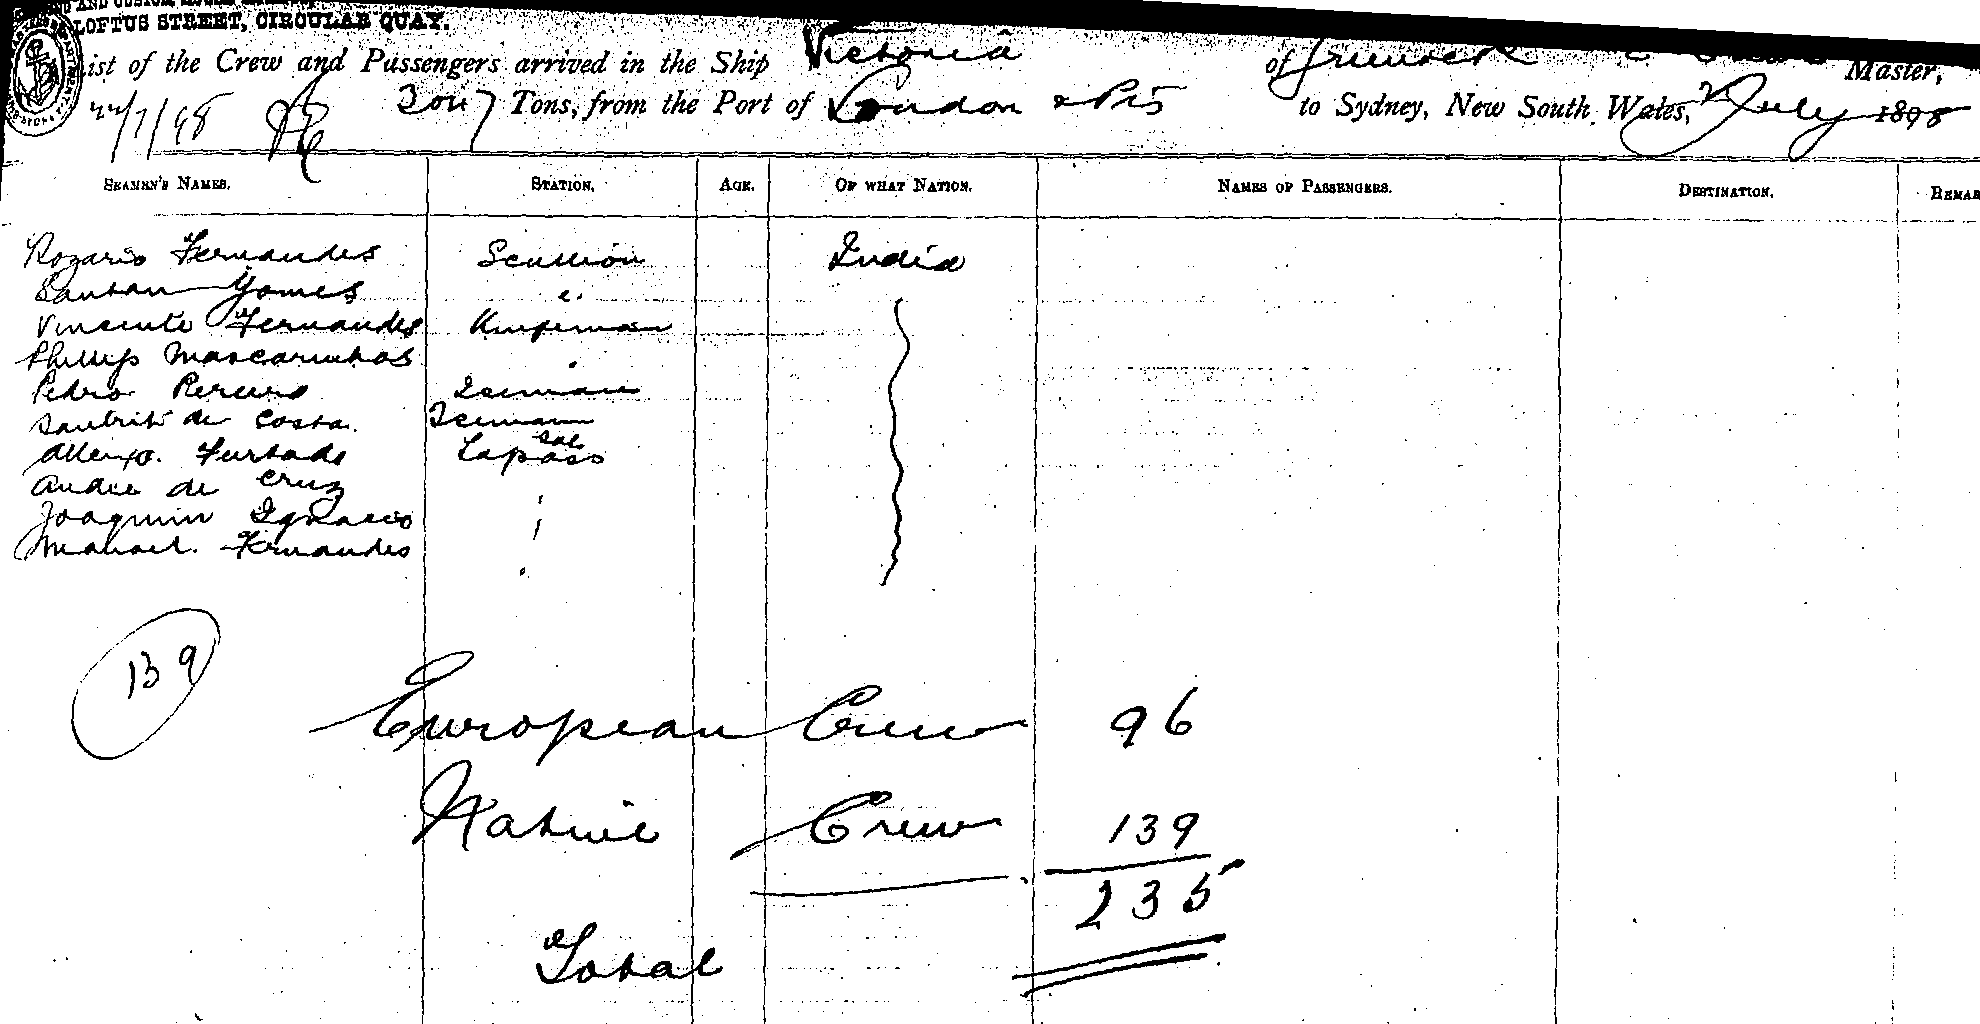 LOFTUS STREET, CIRCULAR QUAY.
List of the Crew and Passengers arrived in the Ship Victoria of Greenock Master,
22/7/98 Tons, from the Port of London & Pts to Sydney, New South Wales, July 1898
SEAMEN'S NAMES. STATION. AGE. OF WHAT NATION. NAMES OF PASSENGERS. DESTINATION. REMAR
Rozario Fernandes Scullion India
Santan Gomes "
Vincente Fernandes
Phillip Mascarinhas "
Pedro
de Costa.
Furtado Topass
Andre de Cruz "
Joaquim Ignacio "
Manoel. Fernandes "
139
European Crew 96
Native Crew 139
235
Total